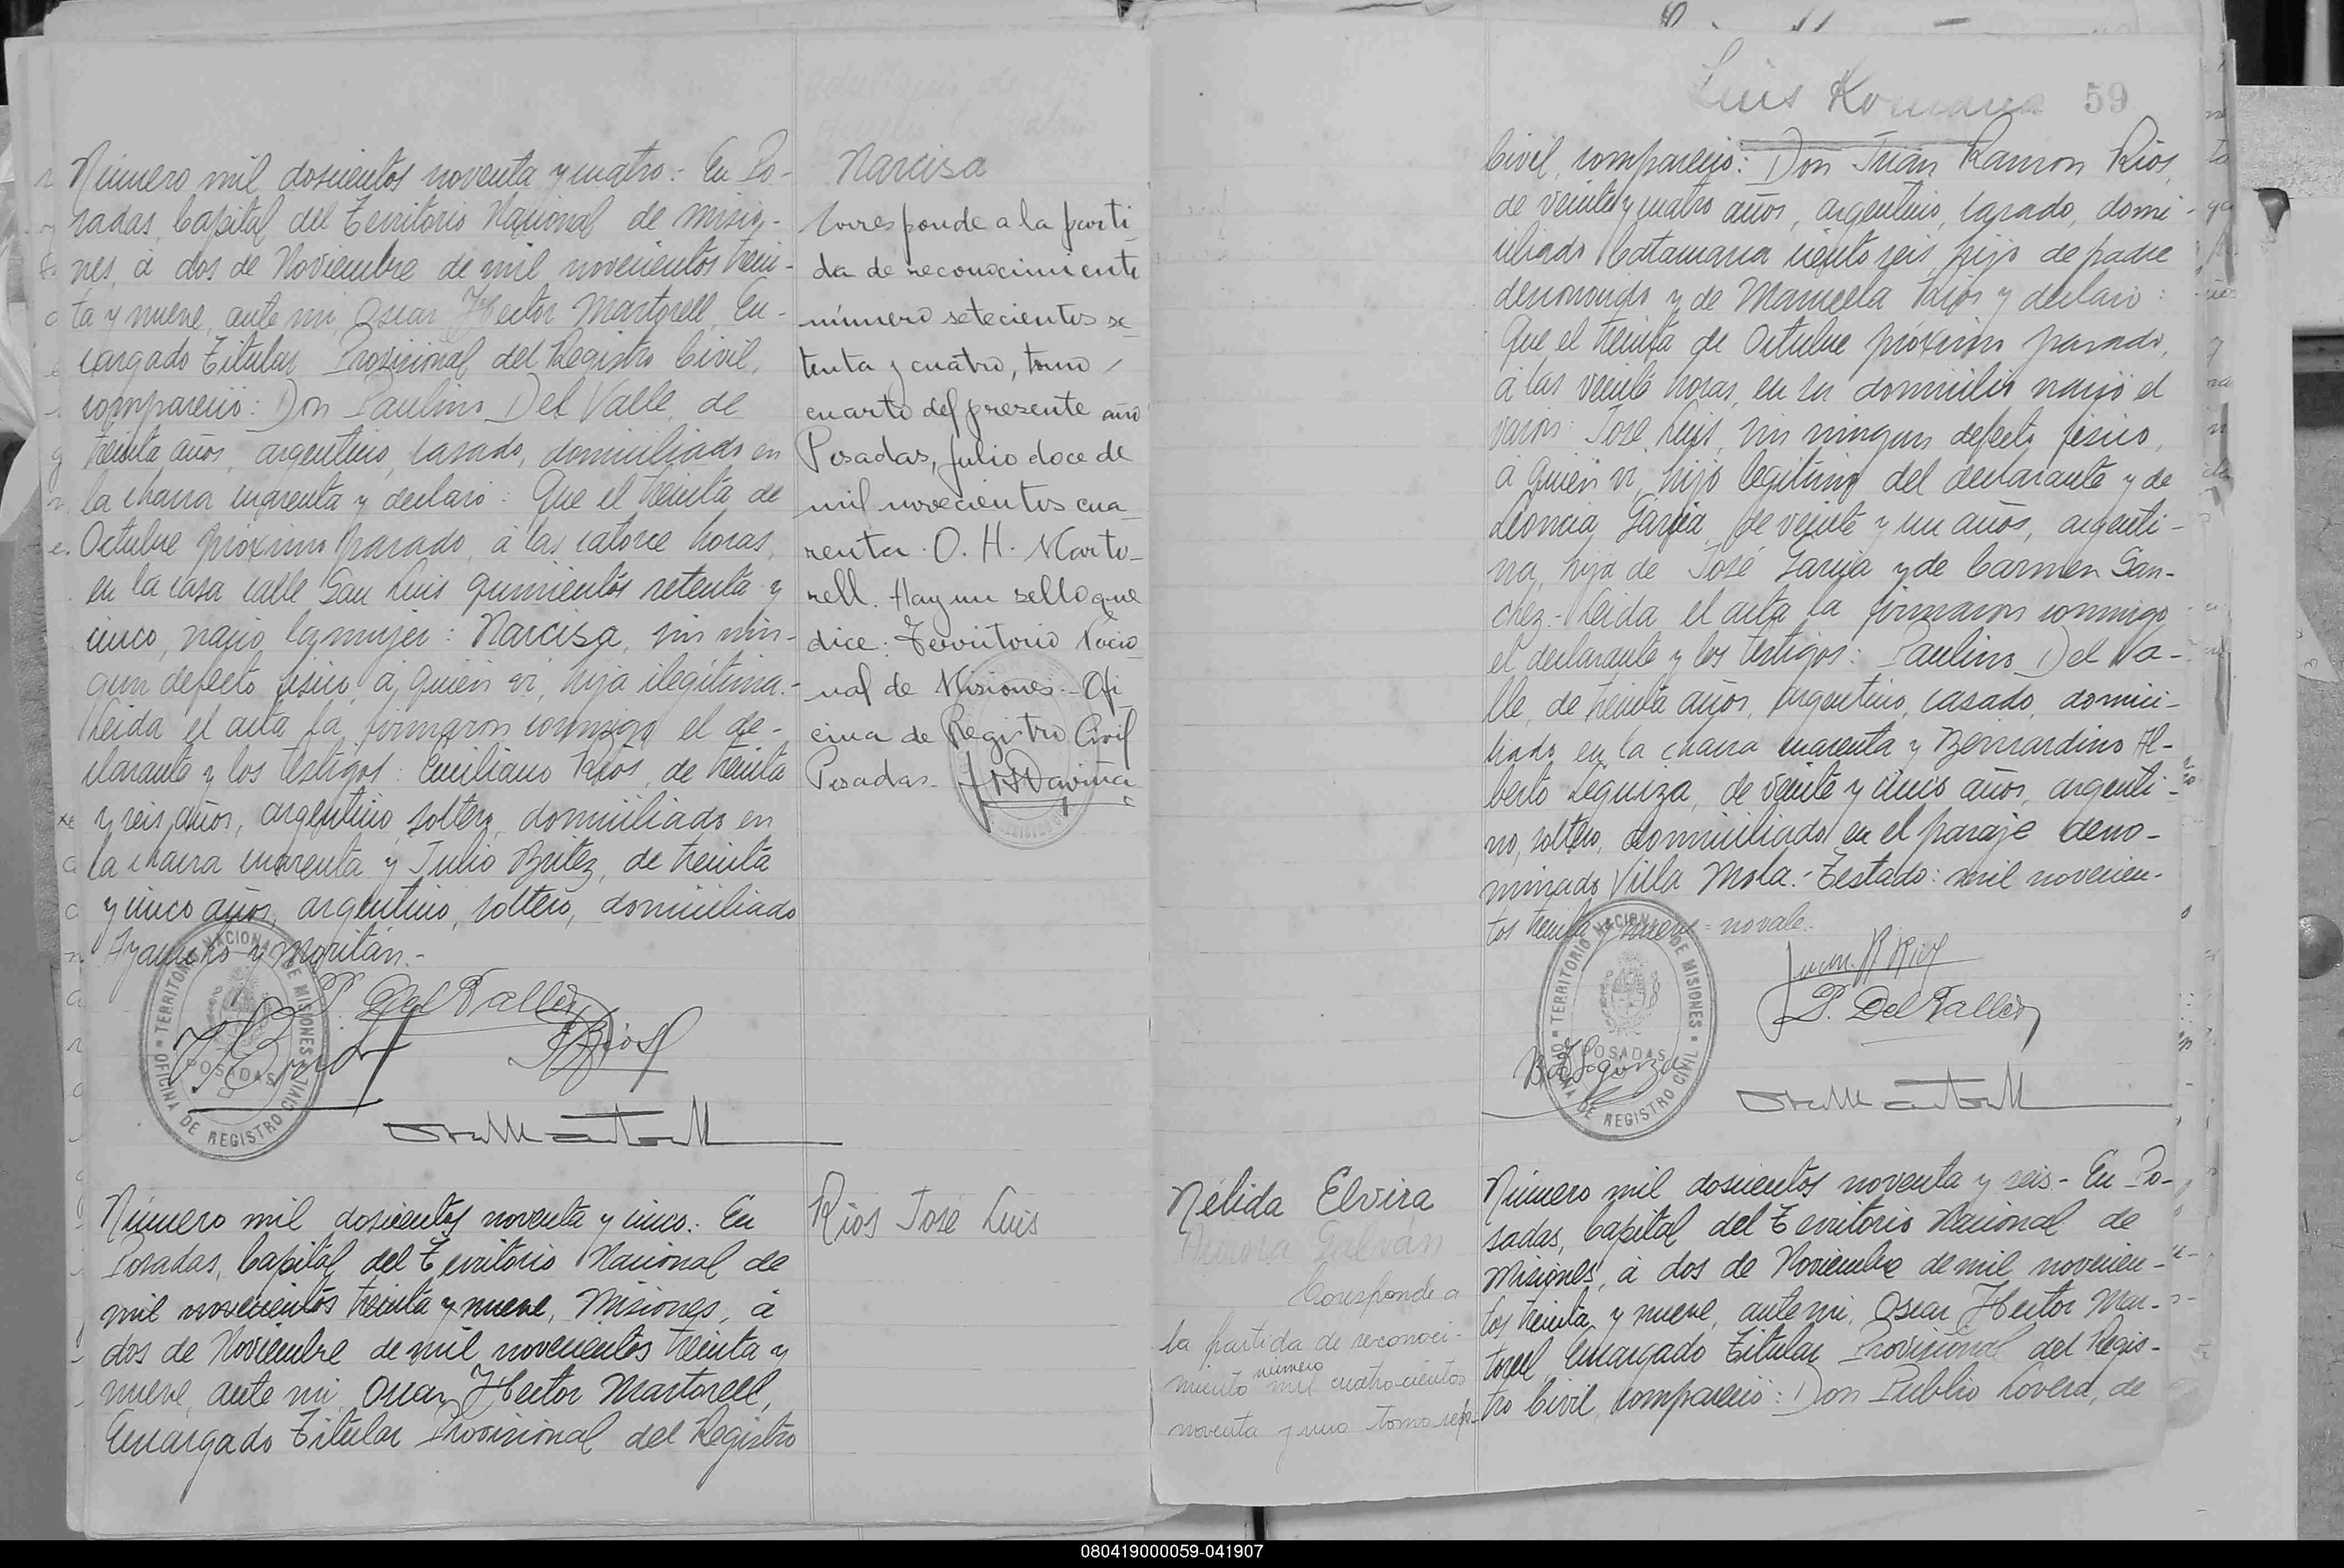 Número mil doscientos noventa y cuatro: En Po-
sadas, Capital del Territorio Nacional de Misio-
nes, á dos de Noviembre de mil novecientos trein-
ta y nueve, ante mi, Oscar Hector Martorell, En-
cargado Titular Provisional del Registro Civil,
compareció: Don Paulino Del Valle, de
treinta años, argentino, casado, domiciliado en
la chacra cuarenta y declaró: Que el treinta de
Octubre próximo pasado, á las catorce horas,
en la casa calle San Luis quinientos setenta y
cinco, nació la mujer: Narcisa, sin nin-
gun defecto fisico, á quien vi, hija ilegítima.-
Leida el acta la firmaron conmigo el de-
clarante y los testigos: Emiliano Ríos, de treinta
y seis años, argentino, soltero, domiciliado en
la chacra cuarenta y Julio Britez, de treinta
y cinco años, argentino, soltero, domiciliado
Ayacucho y Moritán.-
P. Del Valle
E Ríos
TERRITORIO NACIONAL DE MISIONES
POSADAS
OFICINA DE REGISTRO CIVIL
Narcisa
Corresponde a la parti
da de reconocimiento
número setecientos se
tenta y cuatro, tomo
cuarto del presente año
Posadas, Julio doce de
mil novecientos cua-
renta. O. H. Marto-
rell. Hay un sello que
dice: Territorio Nacio
nal de Misiones - Ofi
cina de Registro Civil
Posadas.
Número mil doscientos noventa y cinco: En
Posadas, Capital del Territorio Nacional de
mil novecientos treinta y nueve, Misiones, á
dos de Noviembre de mil novecientos treinta y
nueve, ante mi, Oscar Hector Martorell,
Encargado Titular Provisional del Registro
Ríos José Luis
Luis Romana 59
Civil, compareció: Don Juan Ramon Ríos,
de veinte y cuatro años, argentino, casado, domi-
ciliado Catamarca ciento seis, hijo de padre
desconocido y de Manuela Ríos y declaró:
Que el treinta de Octubre próximo pasado,
á las veinte horas, en su domicilio nació el
varon: José Luis, sin ningun defecto fisico,
á quien vi, hijo legítimo del declarante y de
Leoncia García, de veinte y un años, argenti-
na, hija de José García y de Carmen San-
chez.- Leida el acta la firmaron conmigo
el declarante y los testigos: Paulino Del Va-
lle, de treinta años, argentino, casado, domici-
liado en la chacra cuarenta y Bernardino Al-
berto Leguiza, de veinte y cinco años, argenti-
no, soltero, domiciliado en el paraje deno-
minado Villa Mola.- Testado: mil novecien-
tos treinta y nueve = no vale.-
Juan R Ríos
P. Del Valle
TERRITORIO NACIONAL DE MISIONES
POSADAS
OFICINA DE REGISTRO CIVIL
B A Leguiza
Nélida Elvira
Aurora Galván
Corresponde a
la partida de reconoci-
miento número mil cuatrocientos
noventa y uno tomo
Número mil doscientos noventa y seis- En Po-
sadas, Capital del Territorio Nacional de
Misiones, á dos de Noviembre de mil novecien-
tos treinta y nueve, ante mi, Oscar Hector Mar-
torell, Encargado Titular Provisional del Regis-
tro Civil, compareció: Don Publio Lovera, de
080419000059-041907